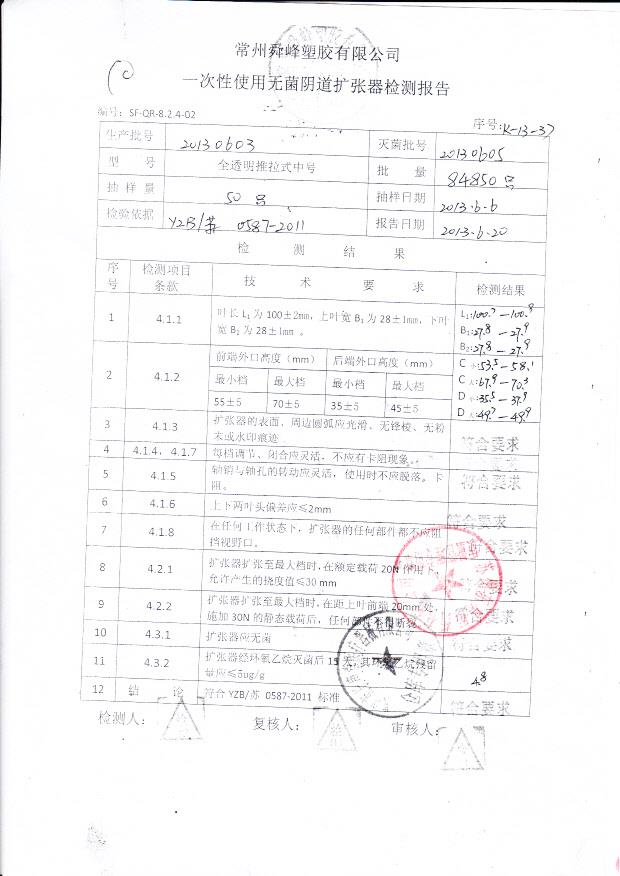 常州舜峰塑胶有限公司
一次性使用无菌阴道扩张器检测报告
编号: SF-QR-8.2.4-02
序号: K-13-37
生产批号 20130603 灭菌批号 20130605
型 号 全透明推拉式中号 批 量 84850只
抽 样 量 50只 抽样日期 2013.6.6
检验依据 YZB/苏 0587-2011 报告日期 2013.6.20
检 测 结 果
序号 检测项目条款 技 术 要 求 检测结果
1 4.1.1 叶长 L₁为 100±2mm, 上叶宽 B₁为 28±1mm, 下叶
宽 B₂为 28±1mm 。
L₁:100.7—100.9
B₁:27.8—27.9
B₂:27.8—27.9
2 4.1.2 前端外口高度(mm) 后端外口高度(mm)
最小档 最大档 最小档 最大档
55±5 70±5 35±5 45±5
C小:53.5—58.1
C大:67.9—70.3
D小:35.5—37.9
D大:49.7—49.9
3 4.1.3 扩张器的表面、周边圆弧应光滑、无锋棱、无粉
末或水印痕迹
符合要求
4 4.1.4, 4.1.7 每档调节、闭合应灵活, 不应有卡阻现象。
符合要求
5 4.1.5 轴销与轴孔的转动应灵活, 使用时不应脱落。卡
阻。
符合要求
6 4.1.6 上下两叶头偏差应≤2mm
符合要求
7 4.1.8 在任何工作状态下, 扩张器的任何部件都不应阻
挡视野口。
符合要求
8 4.2.1 扩张器扩张至最大档时, 在额定载荷 20N 作用下,
允许产生的挠度值≤30 mm
符合要求
9 4.2.2 扩张器扩张至最大档时, 在距上叶前端 20mm 处,
施加 30N 的静态载荷后, 任何部件不得断裂
符合要求
10 4.3.1 扩张器应无菌
符合要求
11 4.3.2 扩张器经环氧乙烷灭菌后 15 天, 其环氧乙烷残留
量应≤5ug/g
4.8
12 结 论 符合 YZB/苏 0587-2011 标准
符合要求
检测人: 复核人: 审核人: